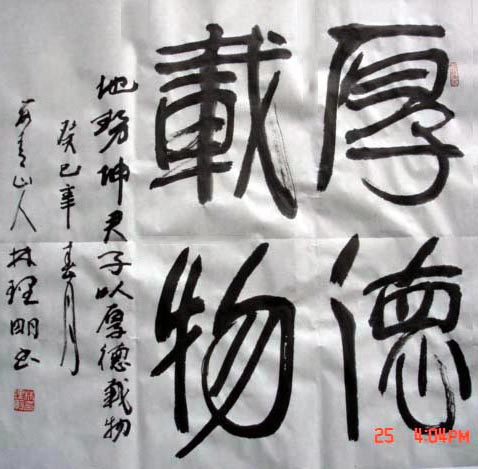 厚德
載物
地势坤君子以厚德載物
癸巳年春月
山人林理明书
25 4:04PM